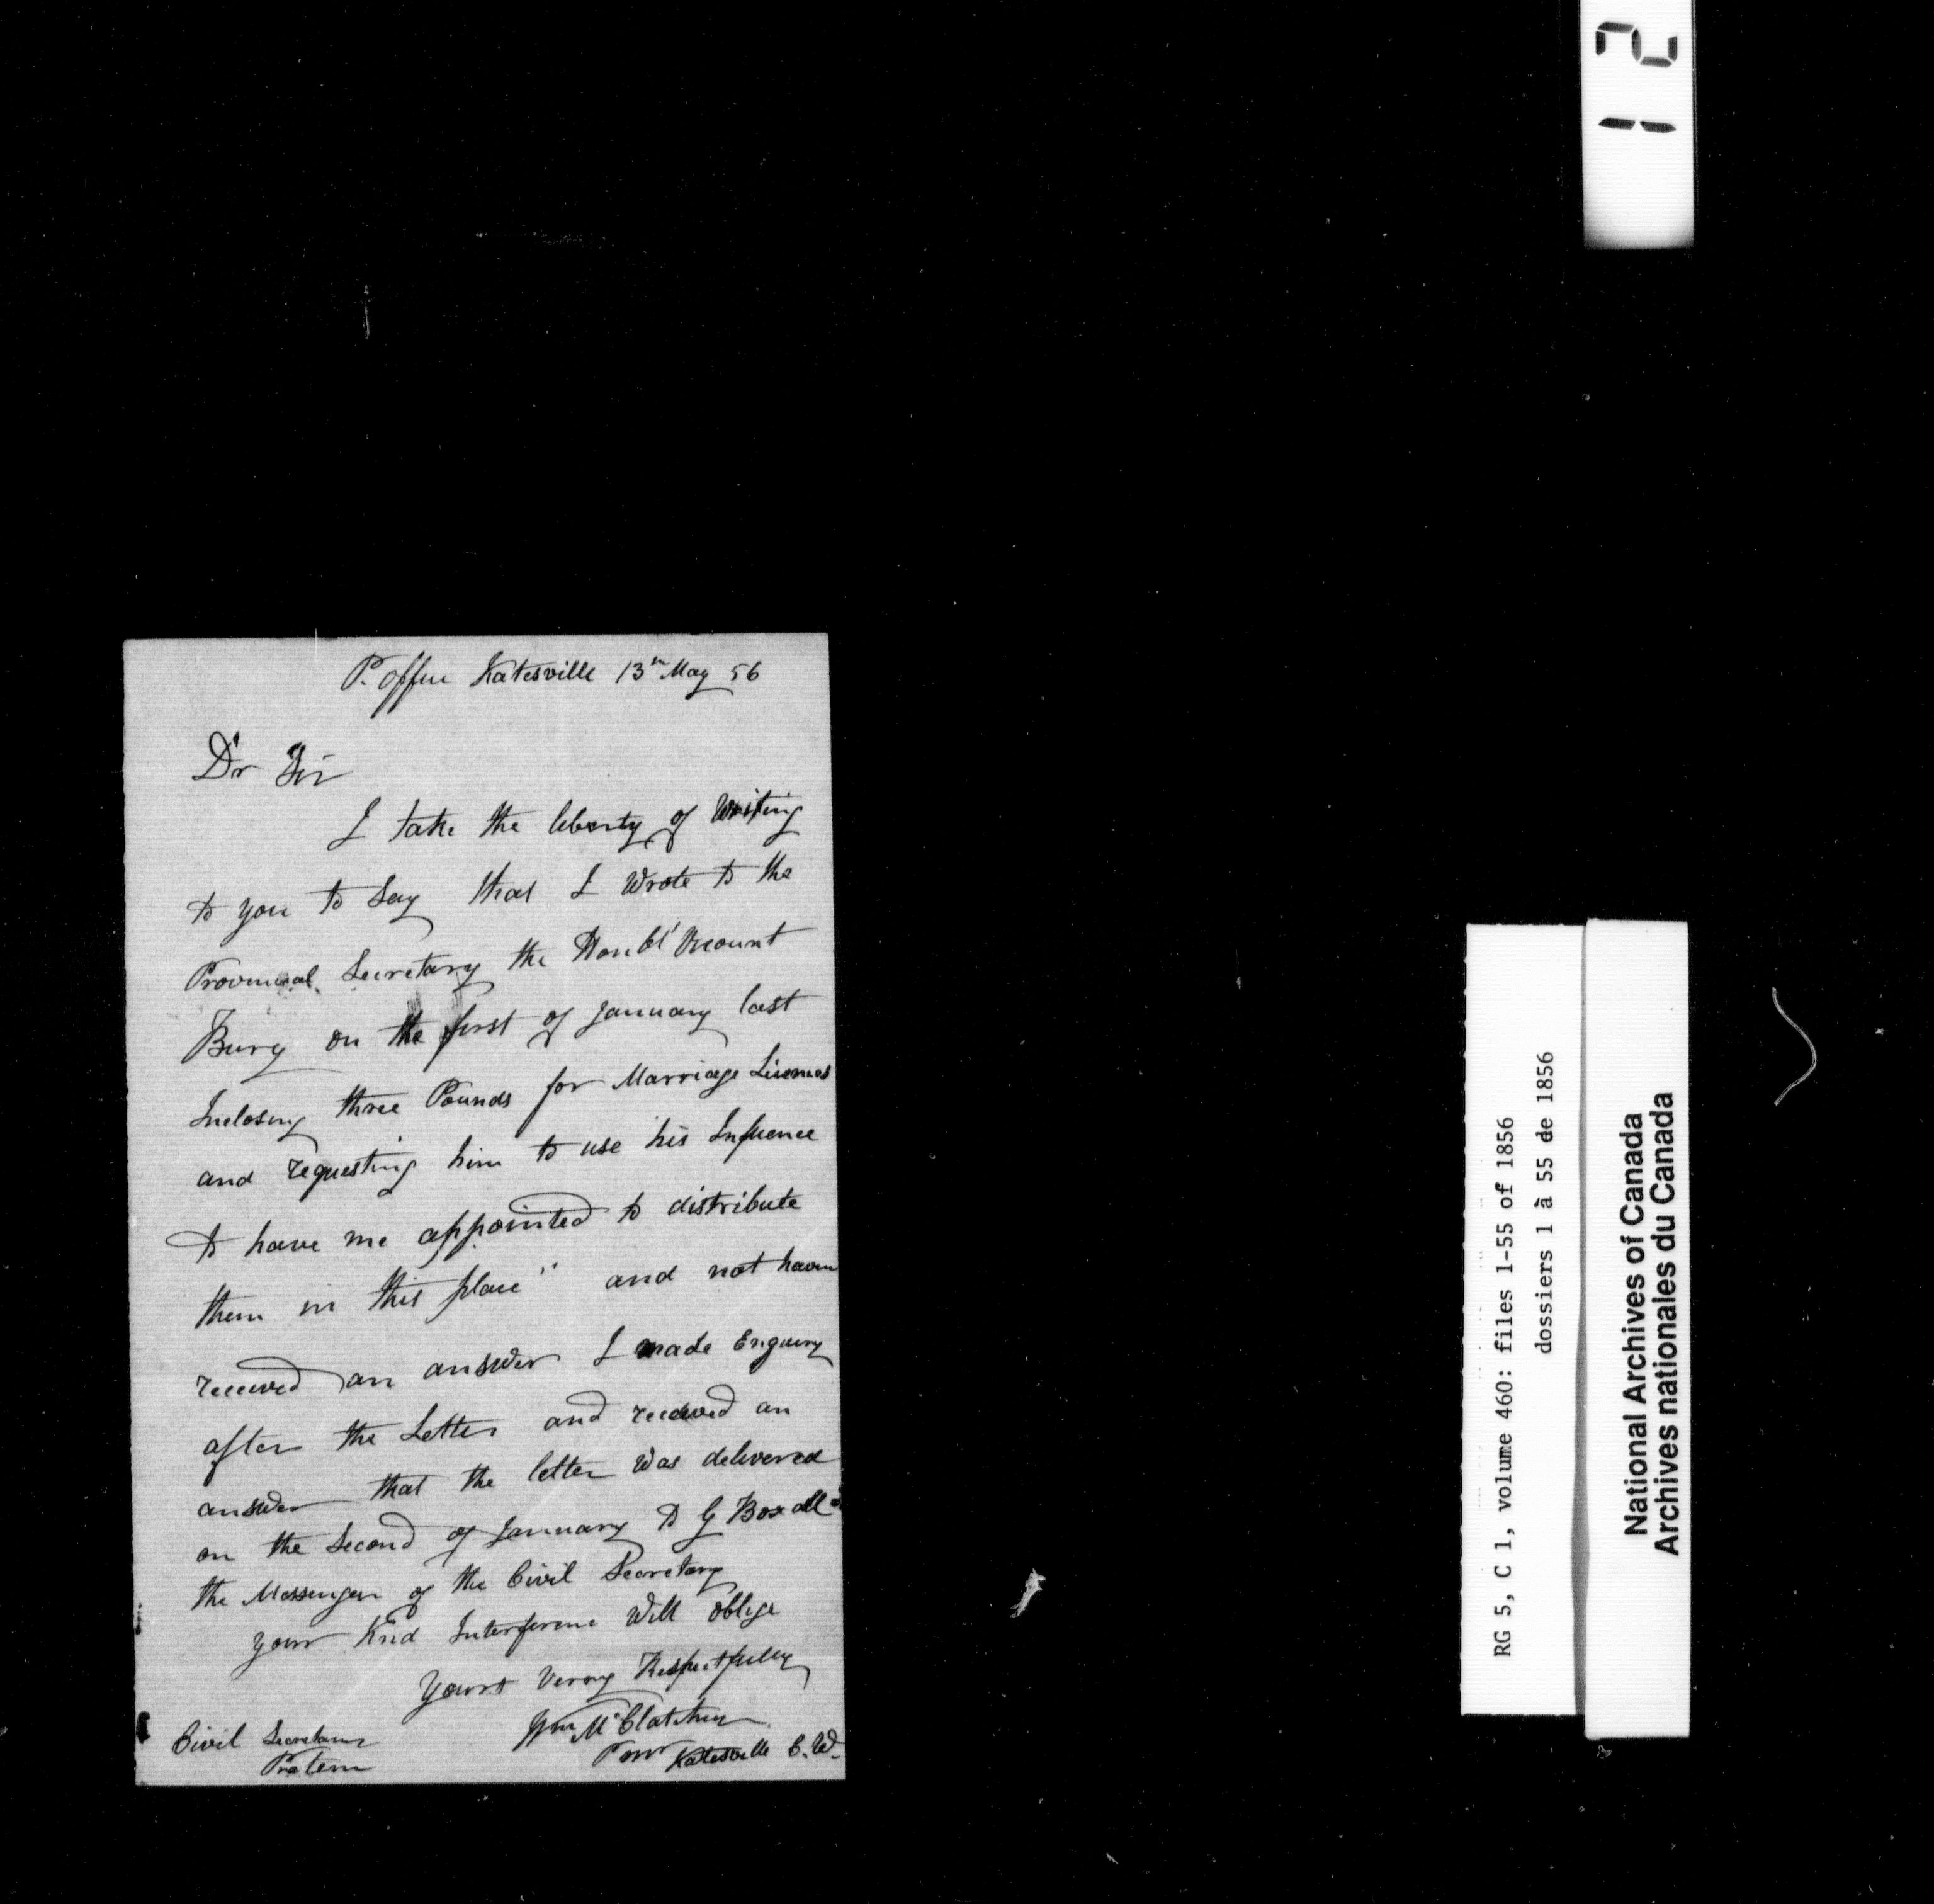 P. Office Katesville 13th May 56
Dr Sir
I take the liberty of writing
to you to Say that I Wrote to the
Provincial Secretary the Honbl' Vicount
Bury on the first of January last
Inclosing three Pounds for Marriage Licenses
and requesting him to use his Infuence
to have me appointed to distribute
them in this place" and not haven
received an answer I made Enquiry
after the Letter and received an
answer that the letter was delivered
on the Second of January to G Boxall
the Messenger of the Civil Secretary
your Kind Interference Will oblige
yours Verry Respectfully
Wm McClatchey
Civil Secretary
Protem
Pmr Katesville C.W.
12
RG 5, C 1, volume 460: files 1-55 of 1856
dossiers 1 à 55 de 1856
National Archives of Canada
Archives nationales du Canada